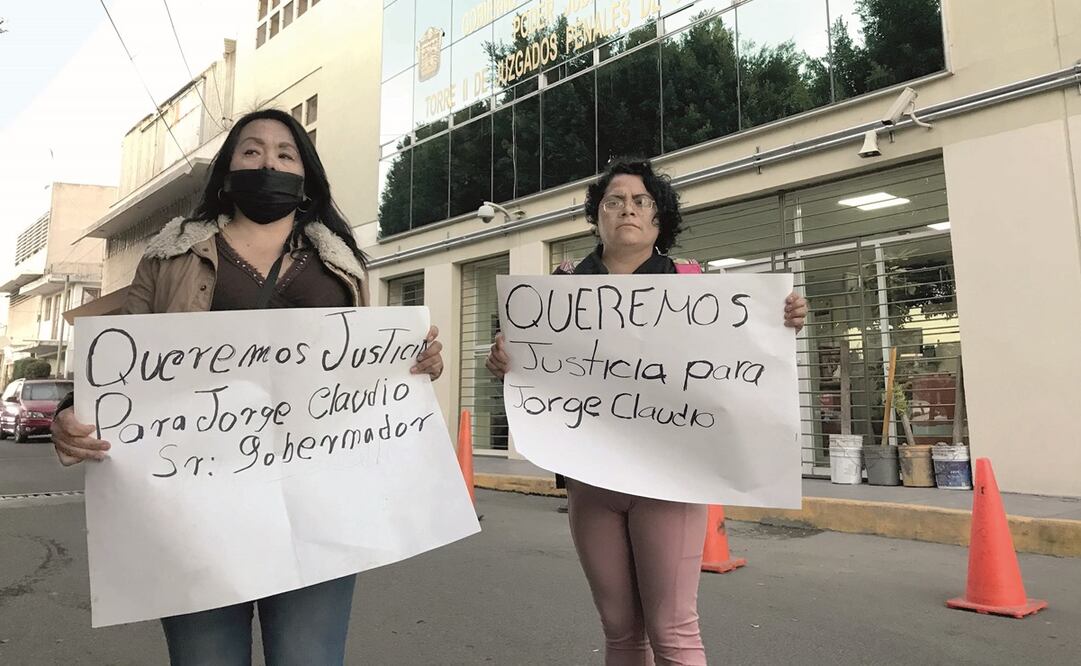 PODER
TORRE II DE JUZGADOS PENALES DE
Queremos Justicia
Para Jorge Claudio
Sr: gobermador
QUEREMOS
Justicia para
Jorge Claudio